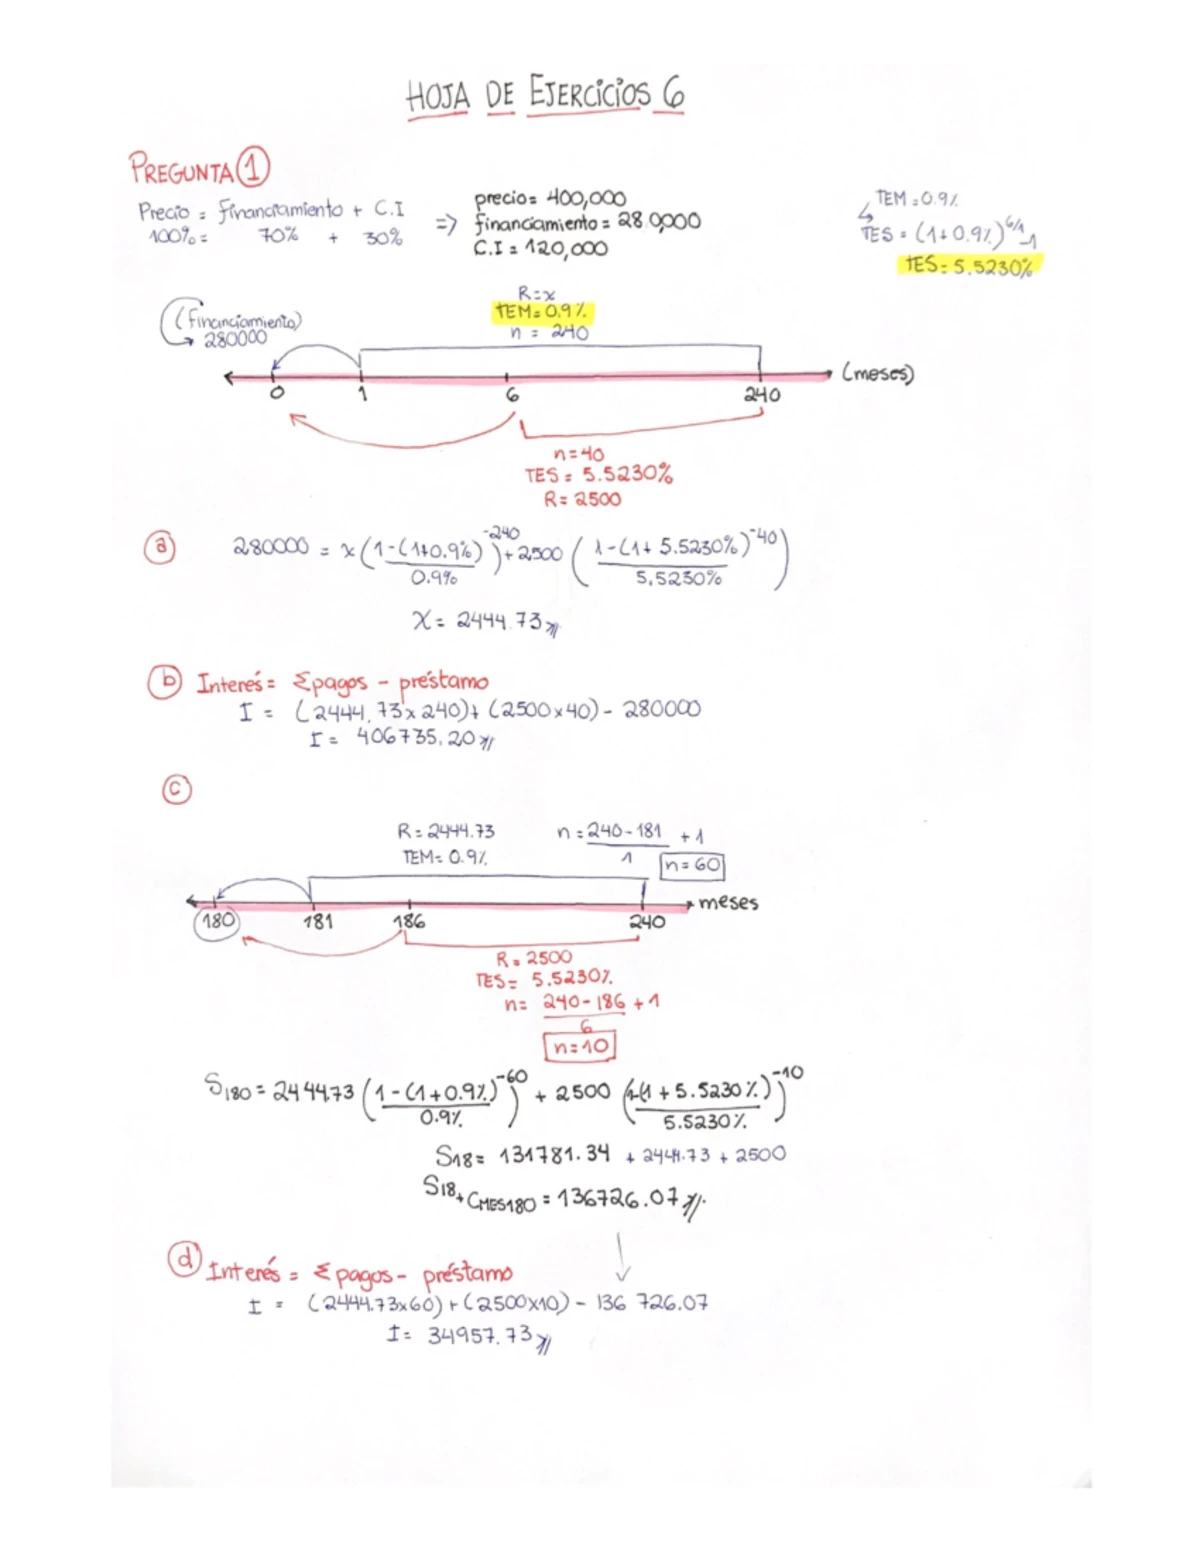 HOJA DE EJERCICIOS 6
PREGUNTA 1
Precio = financiamiento + C.I
100% = 70% + 30%
=> precio = 400,000
financiamiento = 28 0,000
C.I = 120,000
TEM = 0.9%
TES = (1+0.9%)^6/1 -1
TES = 5.5230%
(financiamiento)
280000
R=x
TEM = 0.9%
n = 240
0 1 6 240 (meses)
n=40
TES = 5.5230%
R= 2500
a 280000 = x (1-(1+0.9%)^-240 / 0.9%) + 2500 (1-(1+ 5.5230%)^-40 / 5.5230%)
X = 2444.73
b Interés = Σ pagos - préstamo
I = (2444.73 x 240) + (2500 x 40) - 280000
I = 406735.20
c
R = 2444.73
TEM = 0.9%
n = 240-181 / 1 + 1
n = 60
180 181 186 240 meses
R = 2500
TES = 5.5230%
n = 240-186 / 6 + 1
n=10
S180 = 244473 (1-(1+0.9%)^-60 / 0.9%) + 2500 (1-(1+5.5230%)^-10 / 5.5230%)
S18 = 131781.34 + 2444.73 + 2500
S18 + CMES180 = 136726.07
d Interés = Σ pagos - préstamo
I = (2444.73x60) + (2500x10) - 136 726.07
I = 34957.73